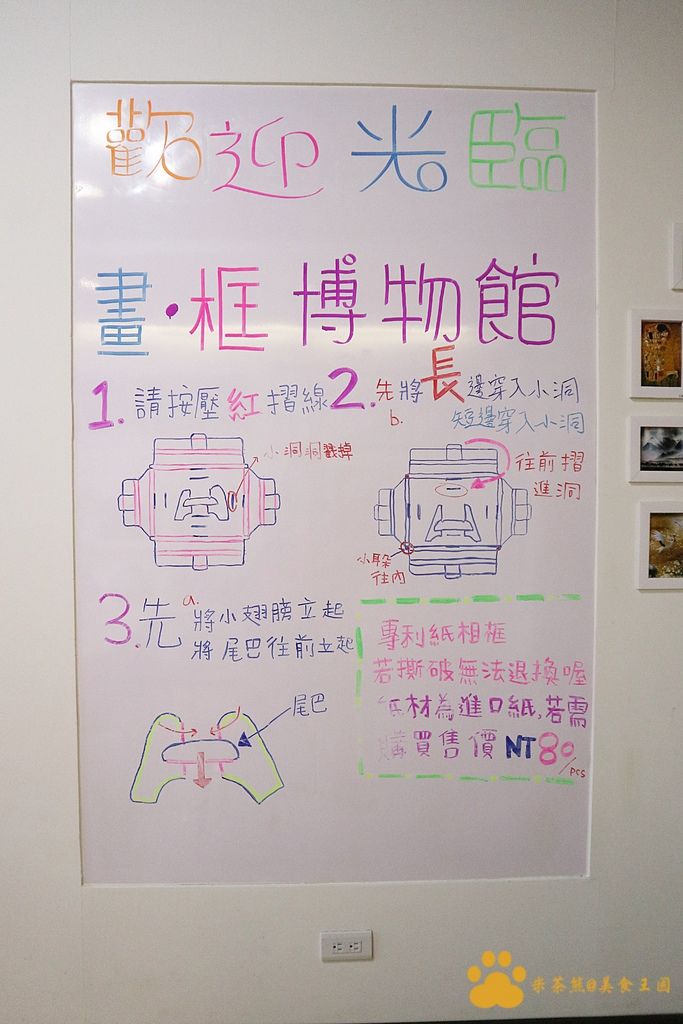 歡迎光臨
畫·框博物館
1.請按壓紅摺線
小洞洞戳掉
2.先將長邊穿入小洞
b. 短邊穿入小洞
往前摺
進洞
小耳朵
往內
3.先 a.將小翅膀立起
將尾巴往前立起
尾巴
專利紙相框
若撕破無法退換喔
紙材為進口紙,若需
購買售價NT80/pcs
米茶熊@美食王國